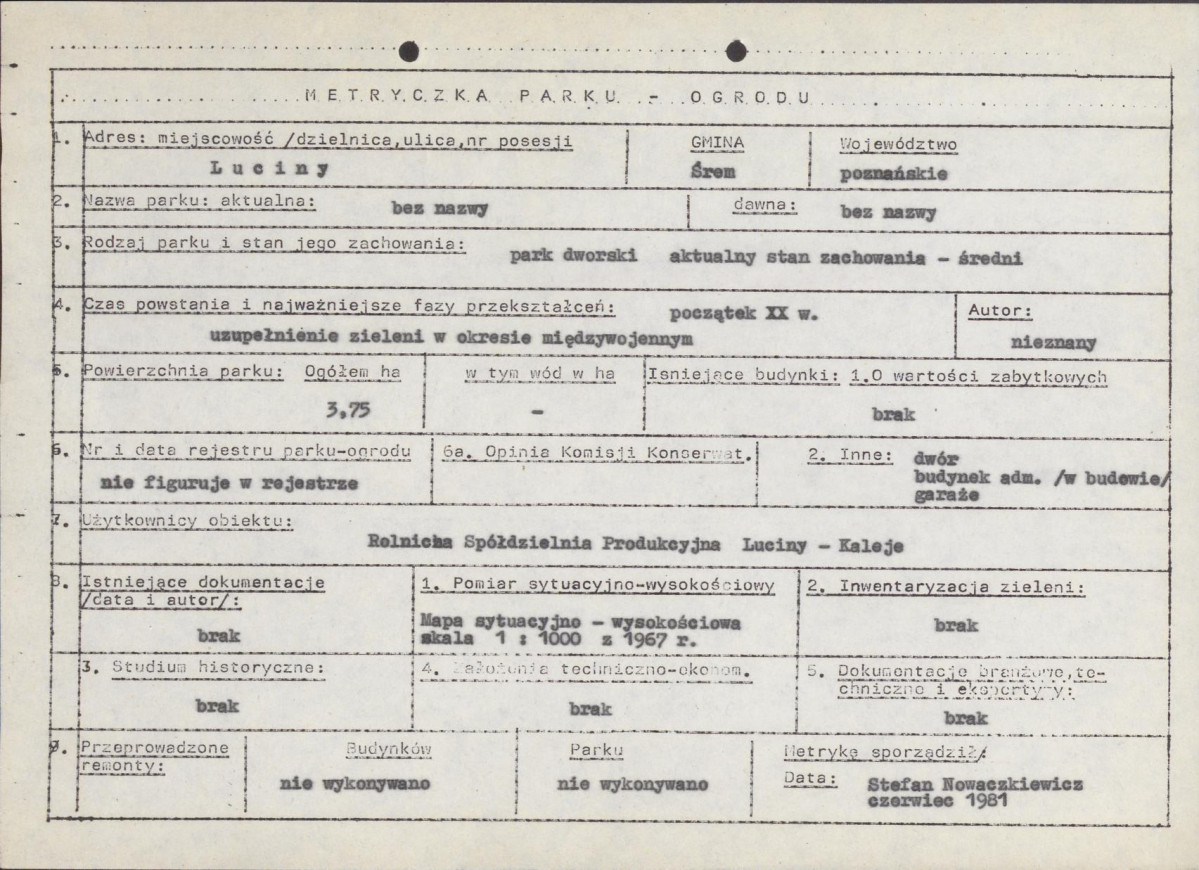 METRYCZKA PARKU - OGRODU
1. Adres: miejscowość /dzielnica,ulica,nr posesji GMINA Województwo
Luciny Śrem poznańskie
2. Nazwa parku: aktualna: bez nazwy dawna: bez nazwy
3. Rodzaj parku i stan jego zachowania: park dworski aktualny stan zachowania - średni
4. Czas powstania i najważniejsze fazy przekształceń: początek XX w. Autor:
uzupełnienie zieleni w okresie międzywojennym nieznany
5. Powierzchnia parku: Ogółem ha w tym wód w ha Isniejące budynki: 1.O wartości zabytkowych
3,75 - brak
6. Nr i data rejestru parku-ogrodu 6a. Opinia Komisji Konserwat. 2. Inne: dwór
nie figuruje w rejestrze budynek adm. /w budowie/
garaże
7. Użytkownicy obiektu:
Rolnicza Spółdzielnia Produkcyjna Luciny - Kaleje
8. Istniejące dokumentacje 1. Pomiar sytuacyjno-wysokościowy 2. Inwentaryzacja zieleni:
/data i autor/:
brak Mapa sytuacyjno - wysokościowa brak
skala 1 : 1000 z 1967 r.
3. Studium historyczne: 4. Założenia techniczno-ekonom. 5. Dokumentacje branżowe,te-
chniczne i ekspertyzy:
brak brak brak
9. Przeprowadzone Budynków Parku Metrykę sporządził/
remonty: nie wykonywano nie wykonywano Data: Stefan Nowaczkiewicz
czerwiec 1981